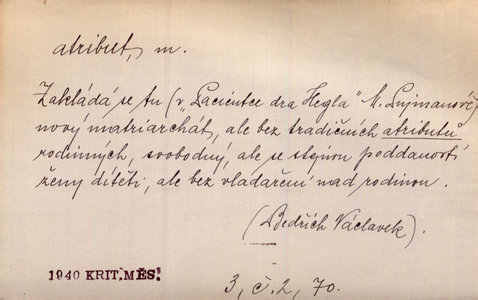 atribut, m.
Zakládá se tu (v „Pacientce dra Hegla“ M. Pujmanové)
nový matriarchát, ale bez tradičních atributů
rodinných, svobodný, ale se stejnou poddaností
ženy dítěti, ale bez vladaření nad rodinou.
(Bedřich Václavek).
1940 KRIT. MĚS.
3, č. 2, 70.